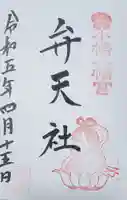 弁天社
令和五年四月十三日